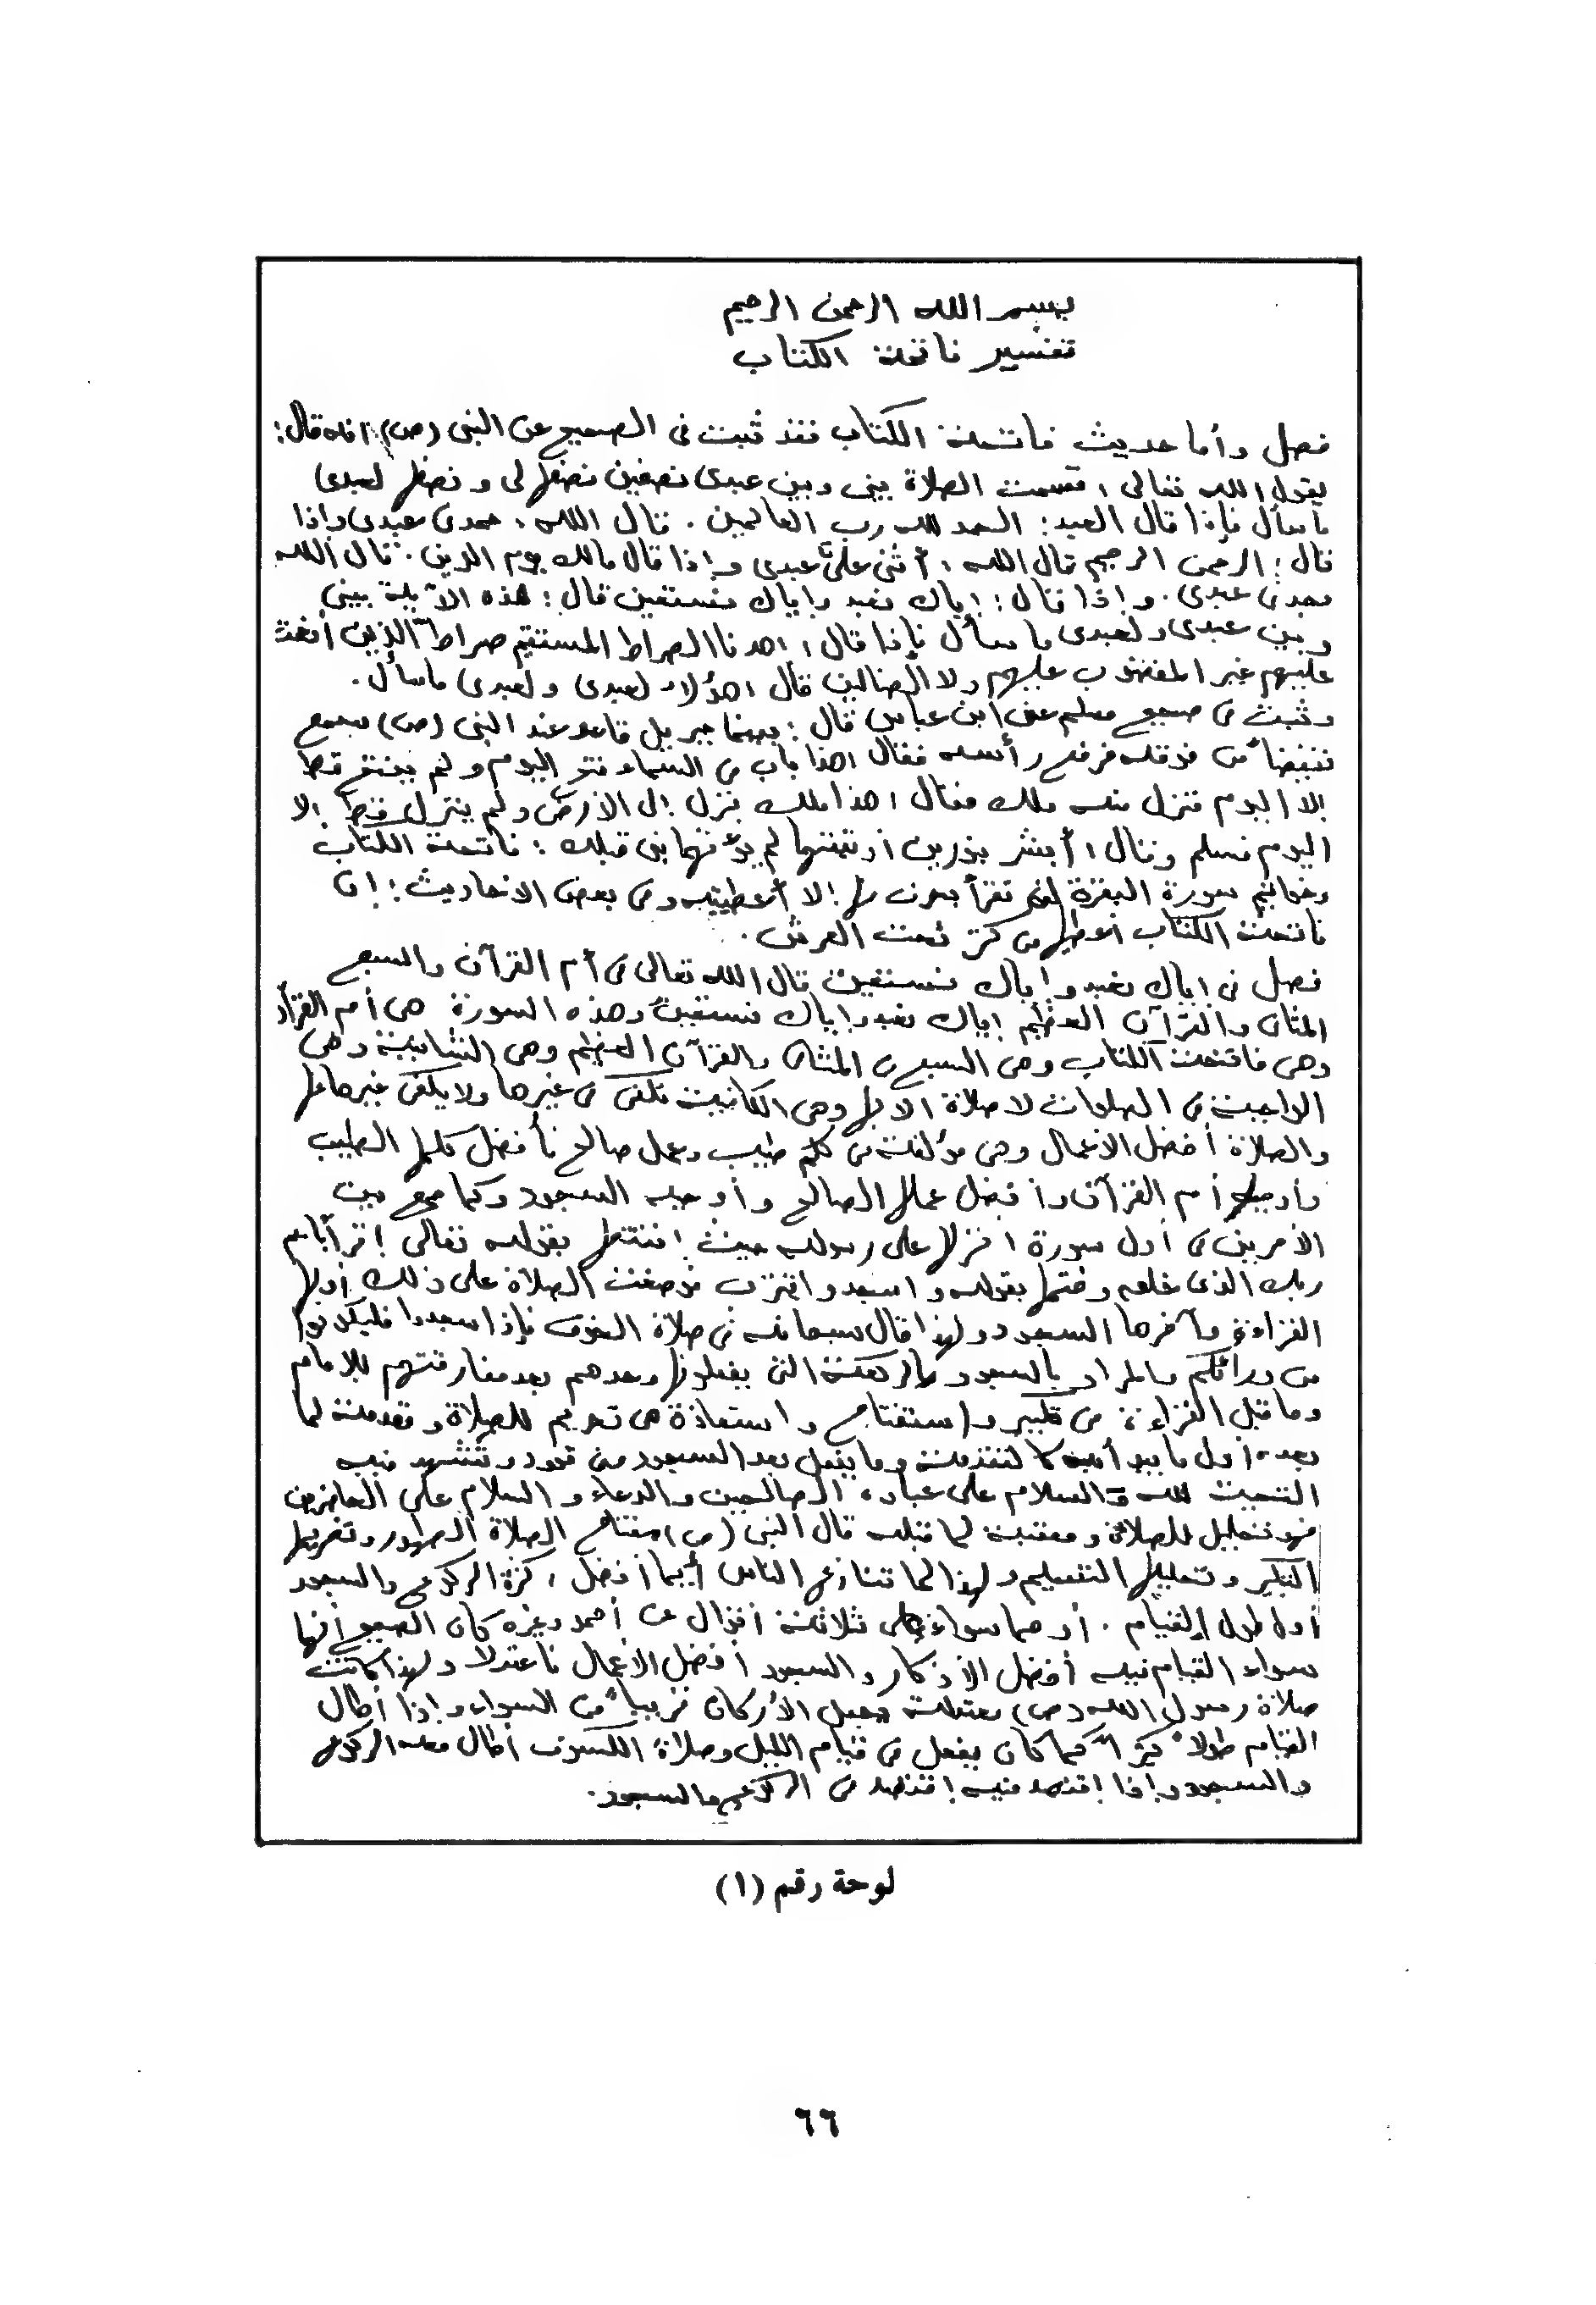 بسم الله الرحمن الرحيم
تفسير فاتحة الكتاب
فصل وأما حديث فاتحة الكتاب فقد ثبت فى الصحيح عن النبى (ص) انه قال:
يقول الله تعالى : قسمت الصلاة بينى وبين عبدى نصفين نصفها لى و نصفها لعبدى
ما سأل فإذا قال العبد : الحمد لله رب العالمين . قال الله : حمدنى عبدى وإذا
قال : الرحمن الرحيم قال الله : أثنى علىّ عبدى وإذا قال مالك يوم الدين . قال الله
مجدنى عبدى . وإذا قال : إياك نعبد وإياك نستعين قال : هذه الآية بينى
وبين عبدى ولعبدى ما سأل فإذا قال : اهدنا الصراط المستقيم صراط الذين أنعمت
عليهم غير المغضوب عليهم ولا الضالين قال هؤلاء لعبدى ولعبدى ما سأل .
وثبت فى صحيح مسلم عن ابن عباس قال : بينما جبريل قاعد عند النبى (ص) سمع
نقيضاً من فوقه فرفع رأسه فقال هذا باب من السماء فتح اليوم ولم يفتح قط
إلا اليوم فنزل منه ملك فقال : هذا ملك نزل إلى الأرض ولم ينزل قط إلا
اليوم فسلم وقال : أبشر بنورين أوتيتهما لم يؤتهما نبى قبلك : فاتحة الكتاب
وخواتيم سورة البقرة لن تقرأ بحرف منها إلا أعطيته وفى بعض الأحاديث : إن
فاتحة الكتاب أعطيها من كنز تحت العرش .
فصل فى إياك نعبد وإياك نستعين قال الله تعالى فى أم القرآن والسبع
المثانى والقرآن العظيم إياك نعبد وإياك نستعين وهذه السورة هى أم القرآن
وهى فاتحة الكتاب وهى السبع من المثانى والقرآن العظيم وهى الشافية وهى
الواجبة فى الصلوات لا صلاة إلا بها وهى الكافية تكفى من غيرها ولا يكفى غيرها عنها
والصلاة أفضل الأعمال وهى مؤلفة من كلم طيب وعمل صالح فأفضل كلمها الطيب
وأوجبه أم القرآن وأفضل عملها الصالح وأوجبه السجود وكما جمع بين
الأمرين فى أول سورة انزلها على رسوله حيث افتتحها بقوله تعالى اقرأ باسم
ربك الذى خلق وختمها بقوله واسجد واقترب فوضعت الصلاة على ذلك أولها
القراءة وآخرها السجود ولهذا قال سبحانه فى صلاة الخوف فإذا سجدوا فليكونوا
من ورائكم والمراد بالسجود الركعة التى يفعلونها وحدهم بعد مفارقتهم للإمام
وما قبل القراءة من تكبير واستفتاح واستعاذة هى تحريم للصلاة ومقدمة لما
بعده أول ما يبدأ به كالتقدمة وما يفعل بعد السجود من قعود وتشهد فيه
التحيت لله والسلام على عباده الصالحين والدعاء والسلام على الحاضرين
فهو تحليل للصلاة ومعقبة لما قبله قال النبى (ص) مفتاح الصلاة الطهور وتحريمها
التكبير وتحليلها التسليم ولهذا لما تنازع الناس أيهما أفضل ، كثرة الركوع والسجود
أول طول القيام . أو هما سواء على ثلاثة أقوال عن أحمد وغيره كان الصحيح أنهما
سواء القيام فيه أفضل الأذكار والسجود أفضل الأعمال فاعتدلا ولهذا كانت
صلاة رسول الله (ص) معتدلة يجعل الأركان قريباً من السواء وإذا أطال
القيام طولاً كثيراً كما كان يفعل فى قيام الليل وصلاة الكسوف أطال معه الركوع
والسجود وإذا اقتصد فيه اقتصد فى الركوع والسجود .
لوحة رقم (١)
٦٦